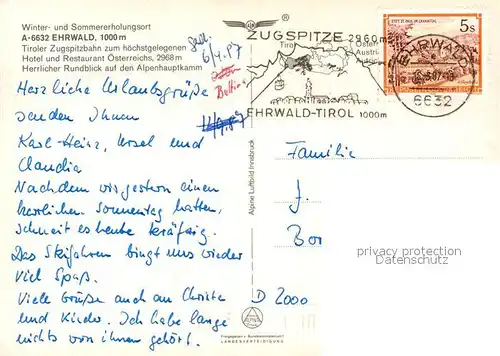 Winter- und Sommererholungsort
A-6632 EHRWALD, 1000 m
Tiroler Zugspitzbahn zum höchstgelegenen
Hotel und Restaurant Österreichs, 2968 m
Herrlicher Rundblick auf den Alpenhauptkamm
6/4.87
Herzliche Urlaubsgrüße
senden Ihnen
Karl-Heinz, Ursel und
Claudia
Nachdem wir gestern einen
herrlichen Sonnentag hatten,
schneit es heute kräftig.
Das Skifahren bringt uns wieder
viel Spaß.
Viele Grüße auch an Christa
und Kinder. Ich habe lange
nichts von ihnen gehört.
Alpine Luftbild Innsbruck
ALPINE
Freigegeben v. Bundesministerium f.
LANDESVERTEIDIGUNG
ZUGSPITZE
2960m
Tirol
Österr
Austria
EHRWALD-TIROL 1000m
EHRWALD
6632
STIFT ST. PAUL IM LAVANTTAL
5s
Familie
J.
Bor
D 2000
privacy protection
Datenschutz